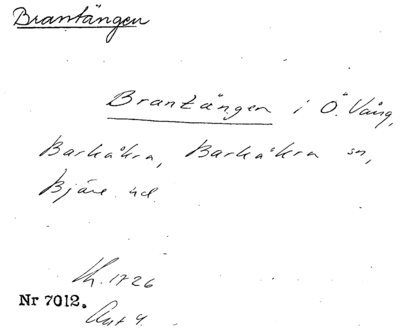 Brantängen
Brantängen i Ö. Vång,
Barkåkra, Barkåkra sn,
Bjäre hd.
Kh. 1726
Nr 7012.
Akt 4.